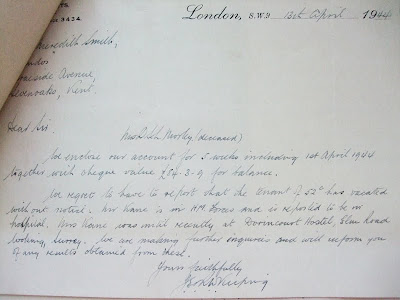 TS.
3434.
London, S.W.9 13th April 1944
Meredith Smith,
Avenue,
Sevenoaks, Kent.
Dear Sir
Morley (deceased)
We enclose our account for 5 weeks including 1st April 1944
together with cheque value £54-3-9 for balance.
We regret to have to report that the tenant of 52c has vacated
without notice. Mr Kane is in HM Forces and is reported to be in
hospital. Mrs Kane was until recently at Dorincourt Hostel, Elm Road
Woking, Surrey. We are making further enquiries and will inform you
of any results obtained from these.
Yours faithfully